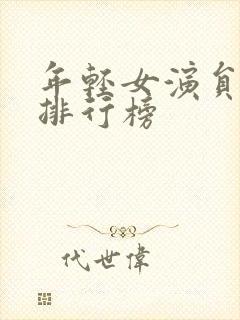 年轻女演員
排行榜
代世偉